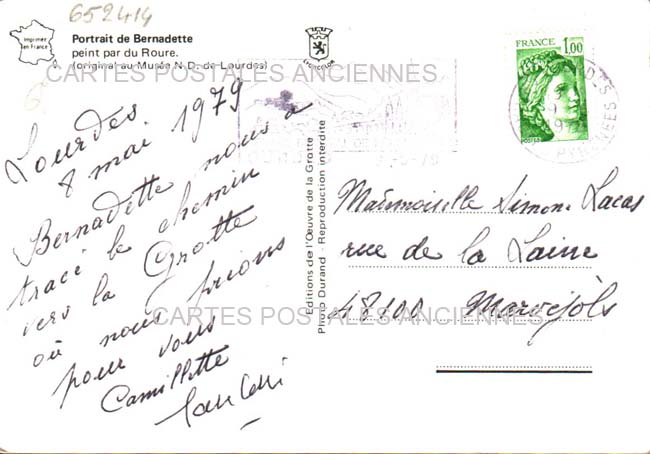 652414
Imprimée
en France
Portrait de Bernadette
peint par du Roure.
(original au Musée N.D. de Lourdes)
LYONCOLOR
CARTES POSTALES ANCIENNES
FRANCE
1,00
POSTES
PYRENEES
Lourdes
8 mai 1979
Bernadette nous a
tracé le chemin
vers la Grotte
où nous prions
pour vous
Camillette
Editions de l'Œuvre de la Grotte
Photo Durand - Reproduction interdite
Mademoiselle Simone Lacas
rue de la Laine
48100 Marvejols
CARTES POSTALES ANCIENNES